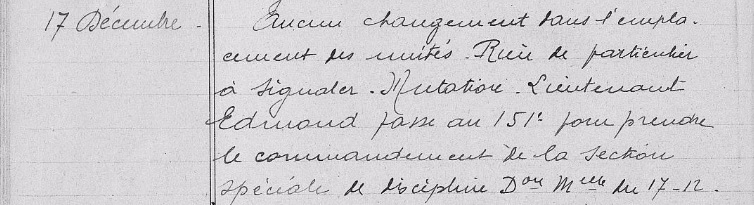 17 Décembre. Aucun changement dans l'empla-
cement des unités. Rien de particulier
à signaler. Mutation. Lieutenant
Edmond passe au 151e pour prendre
le commandement de la section
spéciale de discipline Don Melle du 17-12.